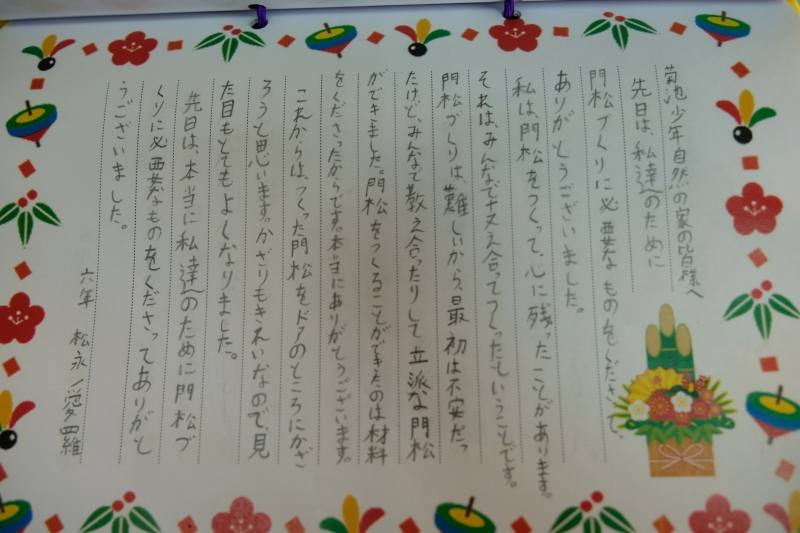 菊池少年自然の家の皆様へ
先日は、私達のために
門松づくりに必要なものをくださって、
ありがとうございました。
私は、門松をつくって、心に残ったことがあります。
それは、みんなで支え合ってつくったということです。
門松づくりは、難しいから、最初は不安だっ
たけど、みんなで教え合ったりして立派な門松
ができました。門松をつくることができたのは材料
をくださったからです。本当にありがとうございます。
これからは、つくった門松をドアのところにかざ
ろうと思います。かざりもきれいなので、見
た目もとてもよくなりました。
先日は、本当に私達のために門松づ
くりに必要なものをくださってありがと
うございました。
六年 松永 愛四維